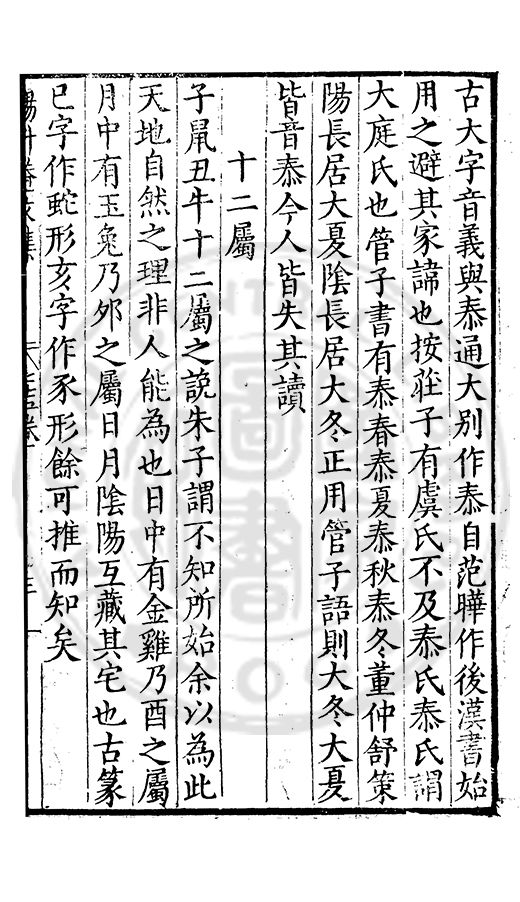 古大字音義與泰通大別作泰自范曄作後漢書始
用之避其家諱也按莊子有虞氏不及泰氏泰氏謂
大庭氏也管子書有泰春泰夏泰秋泰冬董仲舒策
陽長居大夏陰長居大冬正用管子語則大冬大夏
皆音泰今人皆失其讀
十二屬
子鼠丑牛十二屬之說朱子謂不知所始余以為此
天地自然之理非人能為也日中有金雞乃酉之屬
月中有玉兔乃夘之屬日月陰陽互藏其宅也古篆
巳字作蛇形亥字作豕形餘可推而知矣